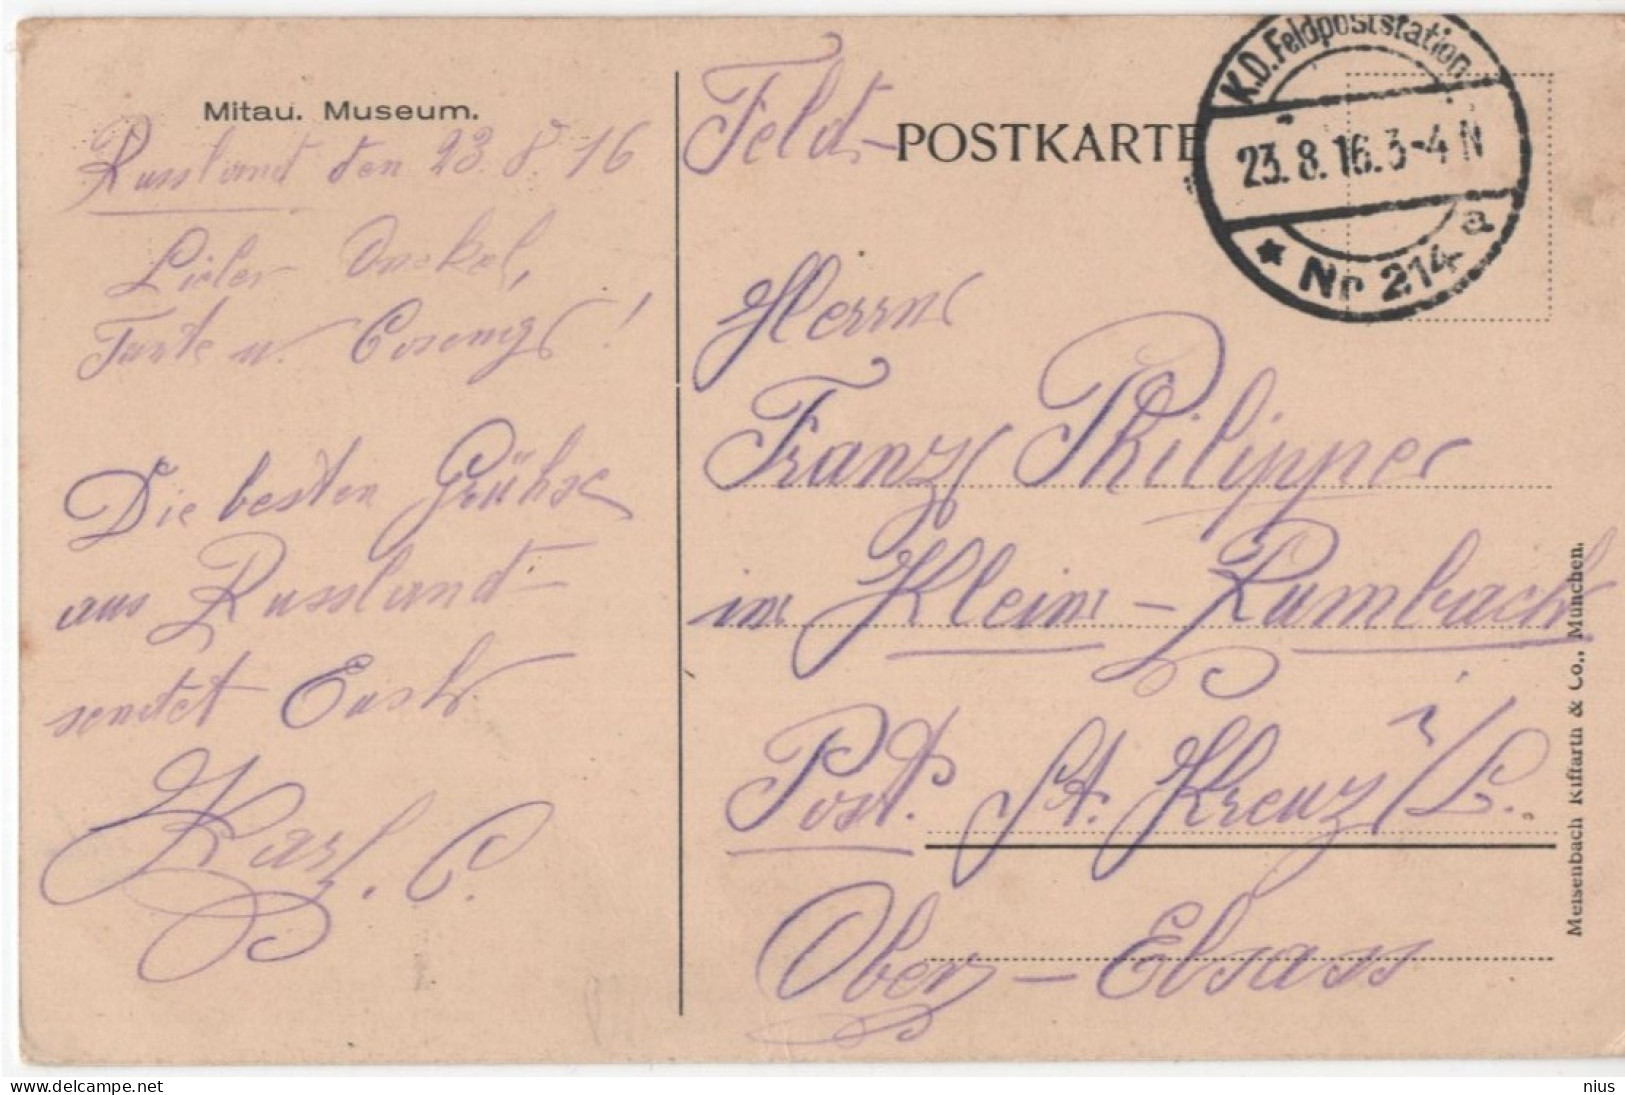 Mitau. Museum.
Russland den 23. 8. 16
Lieber Onckel,
Tante u. Cosengs!
Die besten Grühse
aus Russland
sendet Euch
Karl. C.
Feld-POSTKARTE
K.D. Feldpoststation
23. 8. 16. 3-4 N
★ Nr 214 a
Herrn
Franz Philipper
in Klein-Rumbach
Post. St. Kreuz i/L.
Ober-Elsass
Meisenbach Riffarth & Co., München.
delcampe.net
nius